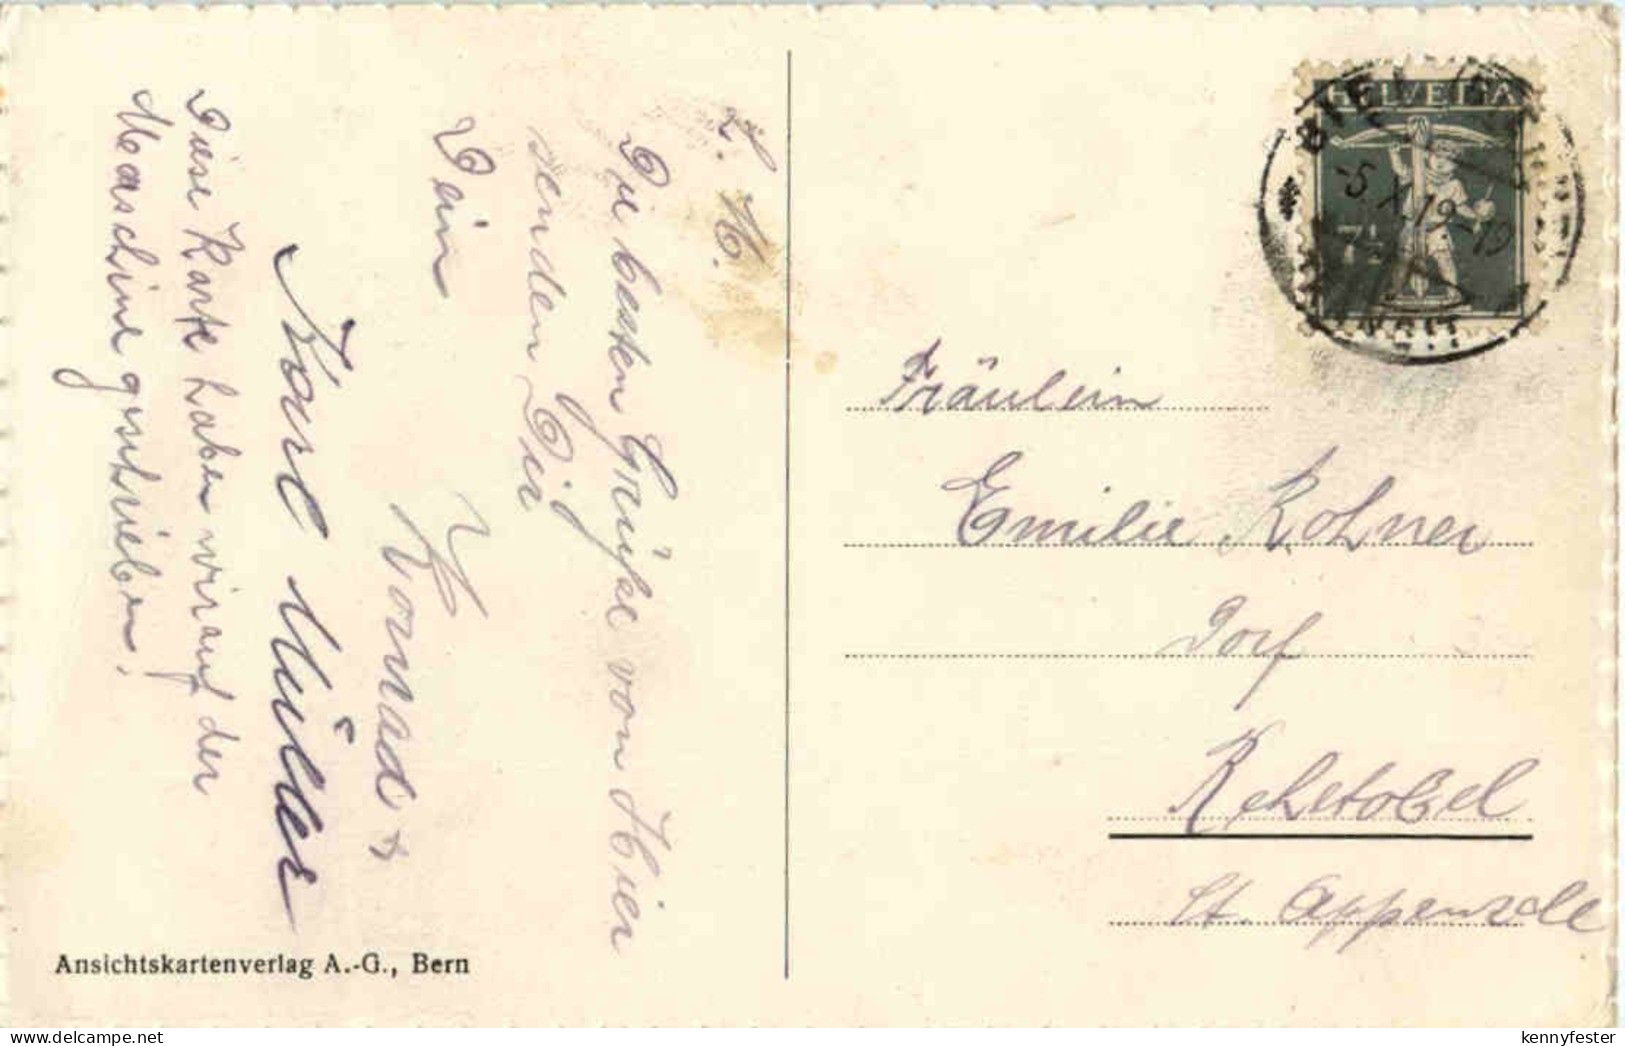 L. M.
Die besten Grüsse von Hier
senden Dir
Dein
Konrad &
Karl Müller
Diese Karte haben wir auf der
Maschine geschrieben.
Ansichtskartenverlag A.-G., Bern
HELVETIA
7½
BIEL
-5.X.19
TRANSIT
Fräulein
Emilie Rohner
Dorf
Rehetobel
Kt. Appenzell
kennyfester